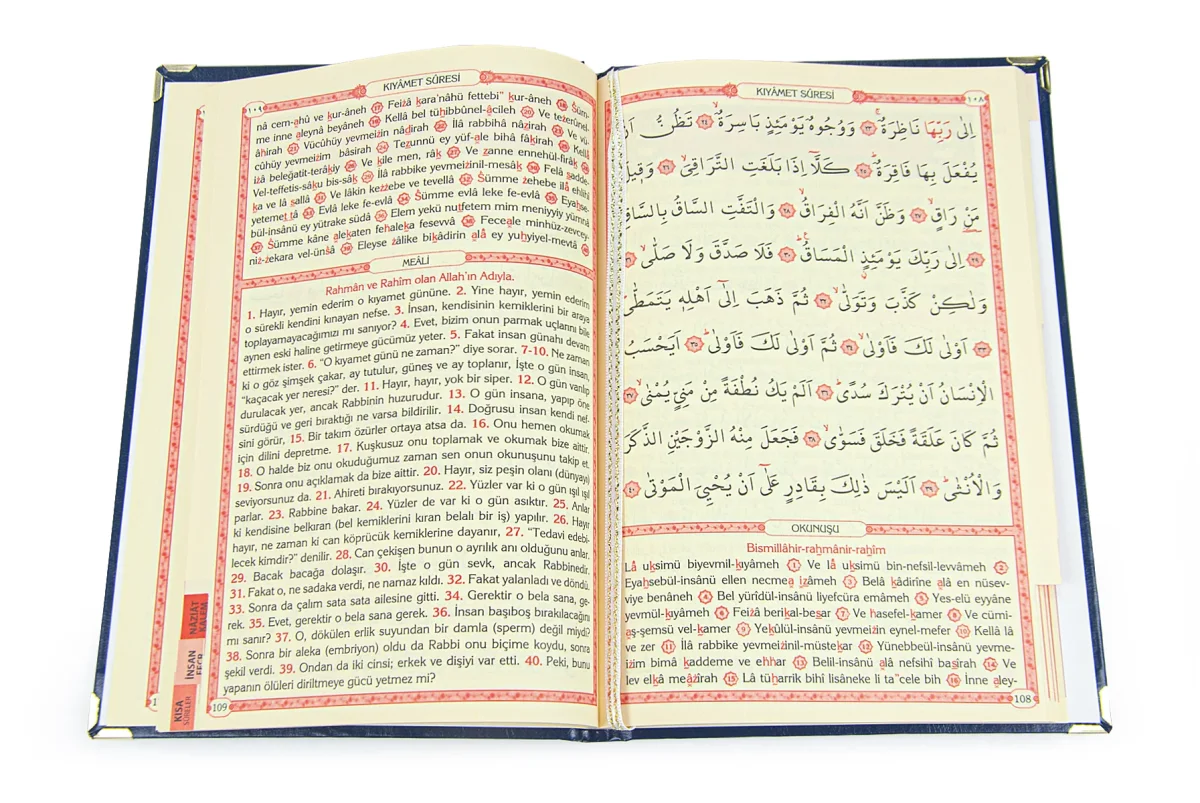 KIYÂMET SÛRESİ
١٠٨
اِلٰى رَبِّهَا نَاظِرَةٌۚ ﴿٢٣﴾ وَوُجُوهٌ يَوْمَئِذٍ بَاسِرَةٌۙ ﴿٢٤﴾ تَظُنُّ اَنْ
يُفْعَلَ بِهَا فَاقِرَةٌۜ ﴿٢٥﴾ كَلَّٓا اِذَا بَلَغَتِ التَّرَاقِيَۙ ﴿٢٦﴾ وَقٖيلَ
مَنْ رَاقٍۙ ﴿٢٧﴾ وَظَنَّ اَنَّهُ الْفِرَاقُۙ ﴿٢٨﴾ وَالْتَفَّتِ السَّاقُ بِالسَّاقِۙ
﴿٢٩﴾ اِلٰى رَبِّكَ يَوْمَئِذٍ الْمَسَاقُۜ ﴿٣٠﴾ فَلَا صَدَّقَ وَلَا صَلّٰىۙ ﴿٣١﴾
وَلٰكِنْ كَذَّبَ وَتَوَلّٰىۙ ﴿٣٢﴾ ثُمَّ ذَهَبَ اِلٰٓى اَهْلِهٖ يَتَمَطّٰىۜ
﴿٣٣﴾ اَوْلٰى لَكَ فَاَوْلٰىۙ ﴿٣٤﴾ ثُمَّ اَوْلٰى لَكَ فَاَوْلٰىۜ ﴿٣٥﴾ اَيَحْسَبُ
الْاِنْسَانُ اَنْ يُتْرَكَ سُدًىۜ ﴿٣٦﴾ اَلَمْ يَكُ نُطْفَةً مِنْ مَنِيٍّ يُمْنٰىۙ ﴿٣٧﴾
ثُمَّ كَانَ عَلَقَةً فَخَلَقَ فَسَوّٰىۙ ﴿٣٨﴾ فَجَعَلَ مِنْهُ الزَّوْجَيْنِ الذَّكَرَ
وَالْاُنْثٰىۜ ﴿٣٩﴾ اَلَيْسَ ذٰلِكَ بِقَادِرٍ عَلٰٓى اَنْ يُحْيِيَ الْمَوْتٰى ﴿٤٠﴾
OKUNUŞU
Bismillâhir-rahmânir-rahîm
Lâ uksimü biyevmil-kıyâmeh 1 Ve lâ uksimü bin-nefsil-levvâmeh 2
Eyahsebül-insânü ellen necmea izâmeh 3 Belâ kâdirîne alâ en nüsev-
viye benâneh 4 Bel yürîdül-insânü liyefcüra emâmeh 5 Yes-elü eyyâne
yevmül-kıyâmeh 6 Feizâ berikal-besar 7 Ve hasefel-kamer 8 Ve cümi-
aş-şemsü vel-kamer 9 Yekûlül-insânü yevmeizin eynel-mefer 10 Kellâ lâ
ve zer 11 İlâ rabbike yevmeizinil-müstekar 12 Yünebbeül-insânü yevme-
izim bimâ kaddeme ve ehhar 13 Belil-insânü alâ nefsihî basîrah 14 Ve
lev elkâ meâzîrah 15 Lâ tüharrik bihî lisâneke li ta"cele bih 16 İnne aley-
108
KIYÂMET SÛRESİ
١٠٩
nâ cem-ahû ve kur-âneh 17 Feizâ kara'nâhü fettebi" kur-âneh 18 Süm-
me inne aleynâ beyâneh 19 Kellâ bel tühibbûnel-âcileh 20 Ve tezerûnel-
âhirah 21 Vücûhüy yevmeizin nâdirah 22 İlâ rabbihâ nâzirah 23 Ve vü-
cûhüy yevmeizim bâsirah 24 Tezunnü ey yüf-ale bihâ fâkirah 25 Kellâ
izâ beleğatit-terâkıy 26 Ve kîle men, râk 27 Ve zanne ennehül-firâk 28
Vel-teffetis-sâku bis-sâk 29 İlâ rabbike yevmeizinil-mesâk 30 Felâ sadde-
ka ve lâ sallâ 31 Ve lâkin kezzebe ve tevellâ 32 Sümme zehebe ilâ ehlihî
yetemettâ 33 Evlâ leke fe-evlâ 34 Sümme evlâ leke fe-evlâ 35 Eyahse-
bül-insânü ey yütrake südâ 36 Elem yekü nutfetem mim meniyyiy yümnâ
37 Sümme kâne alekaten fehaleka fesevvâ 38 Feceale minhüz-zevcey-
niz-zekara vel-ünsâ 39 Eleyse zâlike bikâdirin alâ ey yuhyiyel-mevtâ 40
MEÂLİ
Rahmân ve Rahîm olan Allah'ın Adıyla.
1. Hayır, yemin ederim o kıyamet gününe. 2. Yine hayır, yemin ederim
o sürekli kendini kınayan nefse. 3. İnsan, kendisinin kemiklerini bir araya
toplayamayacağımızı mı sanıyor? 4. Evet, bizim onun parmak uçlarını bile
aynen eski haline getirmeye gücümüz yeter. 5. Fakat insan günahı devam
ettirmek ister. 6. "O kıyamet günü ne zaman?" diye sorar. 7-10. Ne zaman
ki o göz şimşek çakar, ay tutulur, güneş ve ay toplanır, İşte o gün insan,
"kaçacak yer neresi?" der. 11. Hayır, hayır, yok bir siper. 12. O gün varılıp
durulacak yer, ancak Rabbinin huzurudur. 13. O gün insana, yapıp öne
sürdüğü ve geri bıraktığı ne varsa bildirilir. 14. Doğrusu insan kendi nef-
sini görür, 15. Bir takım özürler ortaya atsa da. 16. Onu hemen okumak
için dilini depretme. 17. Kuşkusuz onu toplamak ve okumak bize aittir.
18. O halde biz onu okuduğumuz zaman sen onun okunuşunu takip et.
19. Sonra onu açıklamak da bize aittir. 20. Hayır, siz peşin olanı (dünyayı)
seviyorsunuz da. 21. Ahireti bırakıyorsunuz. 22. Yüzler var ki o gün ışıl ışıl
parlar. 23. Rabbine bakar. 24. Yüzler de var ki o gün asıktır. 25. Anlar
ki kendisine belkıran (bel kemiklerini kıran belalı bir iş) yapılır. 26. Hayır
hayır, ne zaman ki can köprücük kemiklerine dayanır, 27. "Tedavi edebi-
lecek kimdir?" denilir. 28. Can çekişen bunun o ayrılık anı olduğunu anlar.
29. Bacak bacağa dolaşır. 30. İşte o gün sevk, ancak Rabbinedir.
31. Fakat o, ne sadaka verdi, ne namaz kıldı. 32. Fakat yalanladı ve döndü.
33. Sonra da çalım sata sata ailesine gitti. 34. Gerektir o bela sana, ge-
rek. 35. Evet, gerektir o bela sana gerek. 36. İnsan başıboş bırakılacağını
mı sanır? 37. O, dökülen erlik suyundan bir damla (sperm) değil miydi?
38. Sonra bir aleka (embriyon) oldu da Rabbi onu biçime koydu, sonra
şekil verdi. 39. Ondan da iki cinsi; erkek ve dişiyi var etti. 40. Peki, bunu
yapanın ölüleri diriltmeye gücü yetmez mi?
109
NÂZİÂT
KALEM
İNSAN
FECR
KISA
SÛRELER